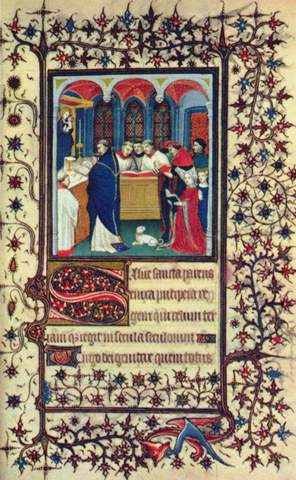 Salue sancta parens
enixa puerpera re
gem qui celum ter
ram regit in secula seculorum
Virgo dei genitrix quem totus